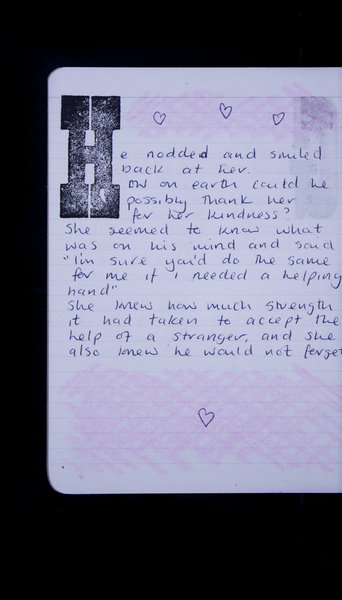 He nodded and smiled
back at her.
How on earth could he
possibly thank her
for her kindness?
She seemed to know what
was on his mind and said
"I'm sure you'd do the same
for me if I needed a helping
hand"
She knew how much strength
it had taken to accept the
help of a stranger, and she
also knew he would not forget